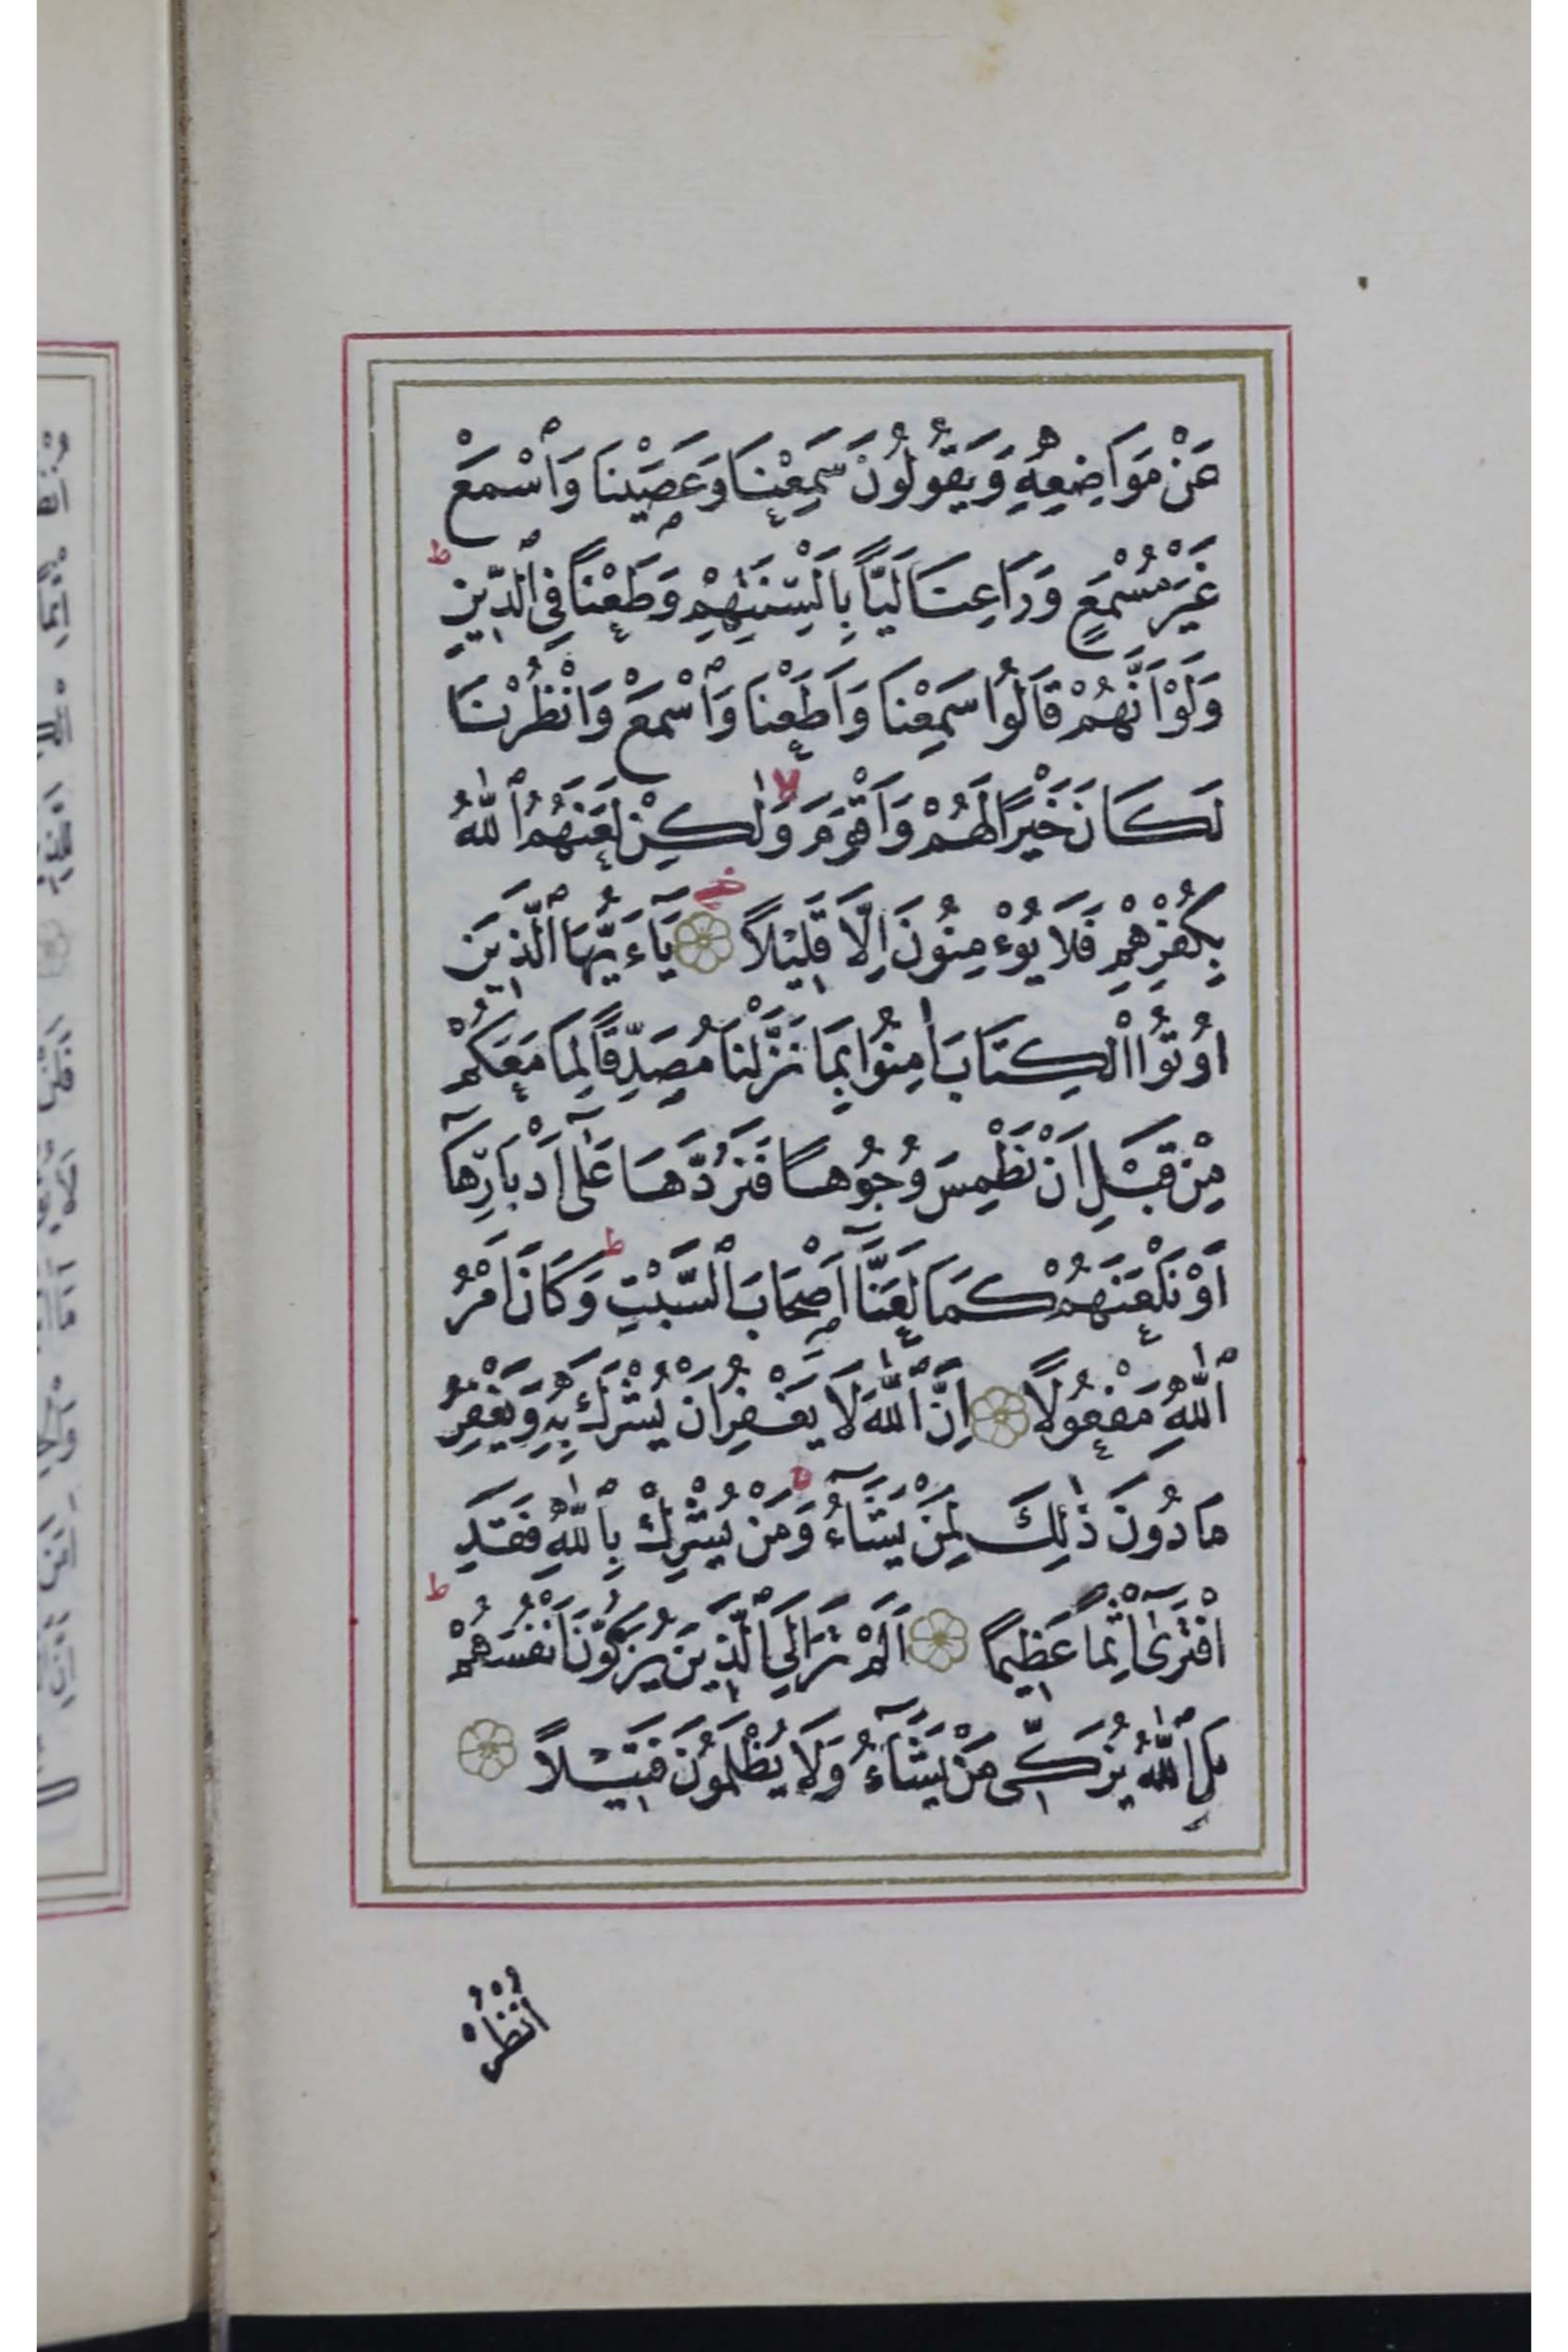 عَنْ مَوَاضِعِهِ وَيَقُولُونَ سَمِعْنَا وَعَصَيْنَا وَاسْمَعْ
غَيْرَ مُسْمَعٍ وَرَاعِنَا لَيًّا بِاَلْسِنَتِهِمْ وَطَعْنًا فِي الدِّينِ ط
وَلَوْ اَنَّهُمْ قَالُوا سَمِعْنَا وَاَطَعْنَا وَاسْمَعْ وَانْظُرْنَا
لَكَانَ خَيْرًا لَهُمْ وَاَقْوَمَ لا وَلٰكِنْ لَعَنَهُمُ اللّٰهُ
بِكُفْرِهِمْ فَلَا يُوْءْمِنُونَ اِلَّا قَلِيْلًا يَاءَيُّهَا الَّذِينَ
اُوتُوا الْكِتَابَ اٰمِنُوا بِمَا نَزَّلْنَا مُصَدِّقًا لِمَا مَعَكُمْ
مِنْ قَبْلِ اَنْ نَطْمِسَ وُجُوهًا فَنَرُدَّهَا عَلٰٓى اَدْبَارِهَآ
اَوْ نَلْعَنَهُمْ كَمَا لَعَنَّآ اَصْحَابَ السَّبْتِ ط وَكَانَ اَمْرُ
اللّٰهِ مَفْعُولًا اِنَّ اللّٰهَ لَا يَغْفِرُ اَنْ يُشْرَكَ بِهِ وَيَغْفِرُ
مَا دُونَ ذٰلِكَ لِمَنْ يَشَآءُ ط وَمَنْ يُشْرِكْ بِاللّٰهِ فَقَدِ
افْتَرٰٓى اِثْمًا عَظِيمًا اَلَمْ تَرَ اِلَى الَّذِينَ يُزَكُّونَ اَنْفُسَهُمْ ط
بَلِ اللّٰهُ يُزَكِّى مَنْ يَشَآءُ وَلَا يُظْلَمُونَ فَتِيْلًا
اُنْظُرْ